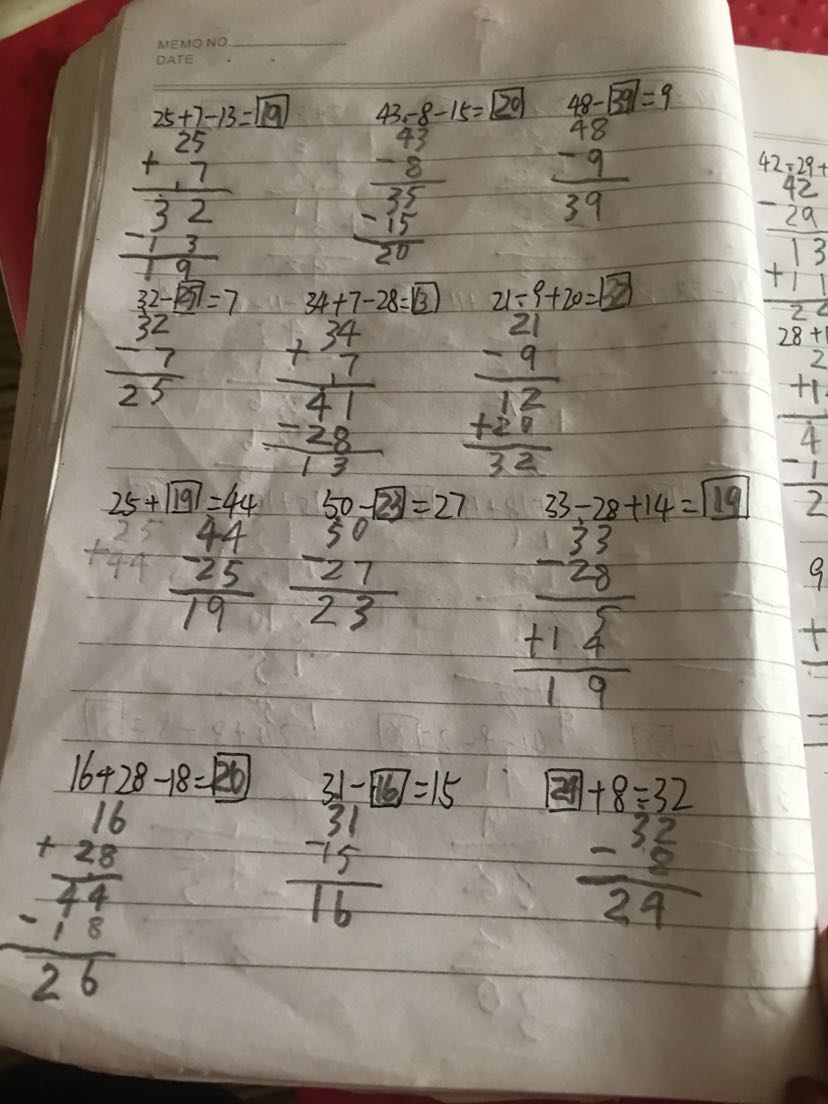 MEMO NO.
DATE
25+7-13=19
25
+ 7
32
-13
19
43-8-15=20
43
-8
35
-15
20
48-39=9
48
-9
39
32-25=7
32
-7
25
34+7-28=13
34
+7
41
-28
13
21-9+20=32
21
-9
12
+20
32
25+19=44
25
+44
44
-25
19
50-23=27
50
-27
23
33-28+14=19
33
-28
5
+14
19
16+28-18=26
16
+28
44
-18
26
31-16=15
31
-15
16
24+8=32
32
-8
24
42-29+
42
-29
13
+11
28+1
2
+1
4
-1
2
9
+